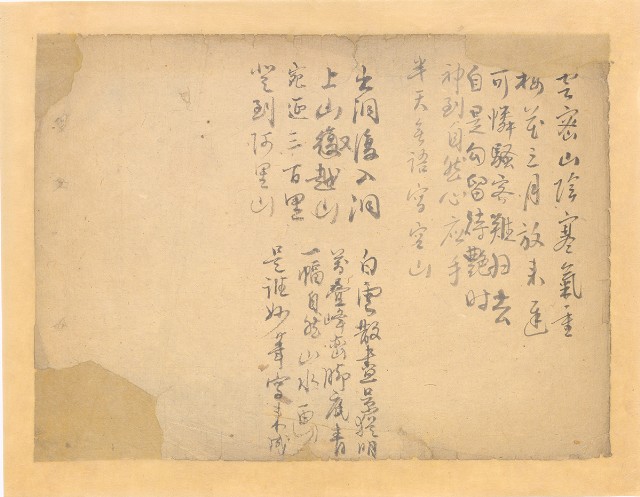 密山陰寒氣重
梅花三月放來遲
可憐騷客難歸去
自是勾留待艷時
神到自然心應手
半天無語寫空山
出洞復入洞
上山復越山
宛延三百里
登到阿里山
白雲散盡景猶明
萬疊峰巒腳底青
一幅自然山水画
是誰妙筆寫來成